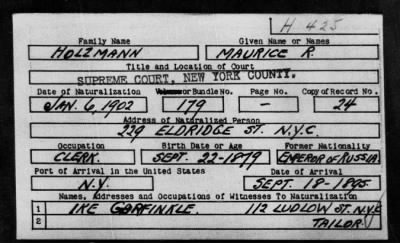 H 425
Family Name Given Name or Names
HOLZMANN MAURICE R.
Title and Location of Court
SUPREME COURT, NEW YORK COUNTY.
Date of Naturalization Volume or Bundle No. Page No. Copy of Record No.
JAN. 6, 1902 179 — 24
Address of Naturalized Person
229 ELDRIDGE ST. N.Y.C.
Occupation Birth Date or Age Former Nationality
CLERK. SEPT. 22-1879 EMPEROR OF RUSSIA
Port of Arrival in the United States Date of Arrival
N.Y. SEPT. 18-1895
Names, Addresses and Occupations of Witnesses To Naturalization
1 IKE GARFINKLE. 112 LUDLOW ST. N.Y.C
2 TAILOR.